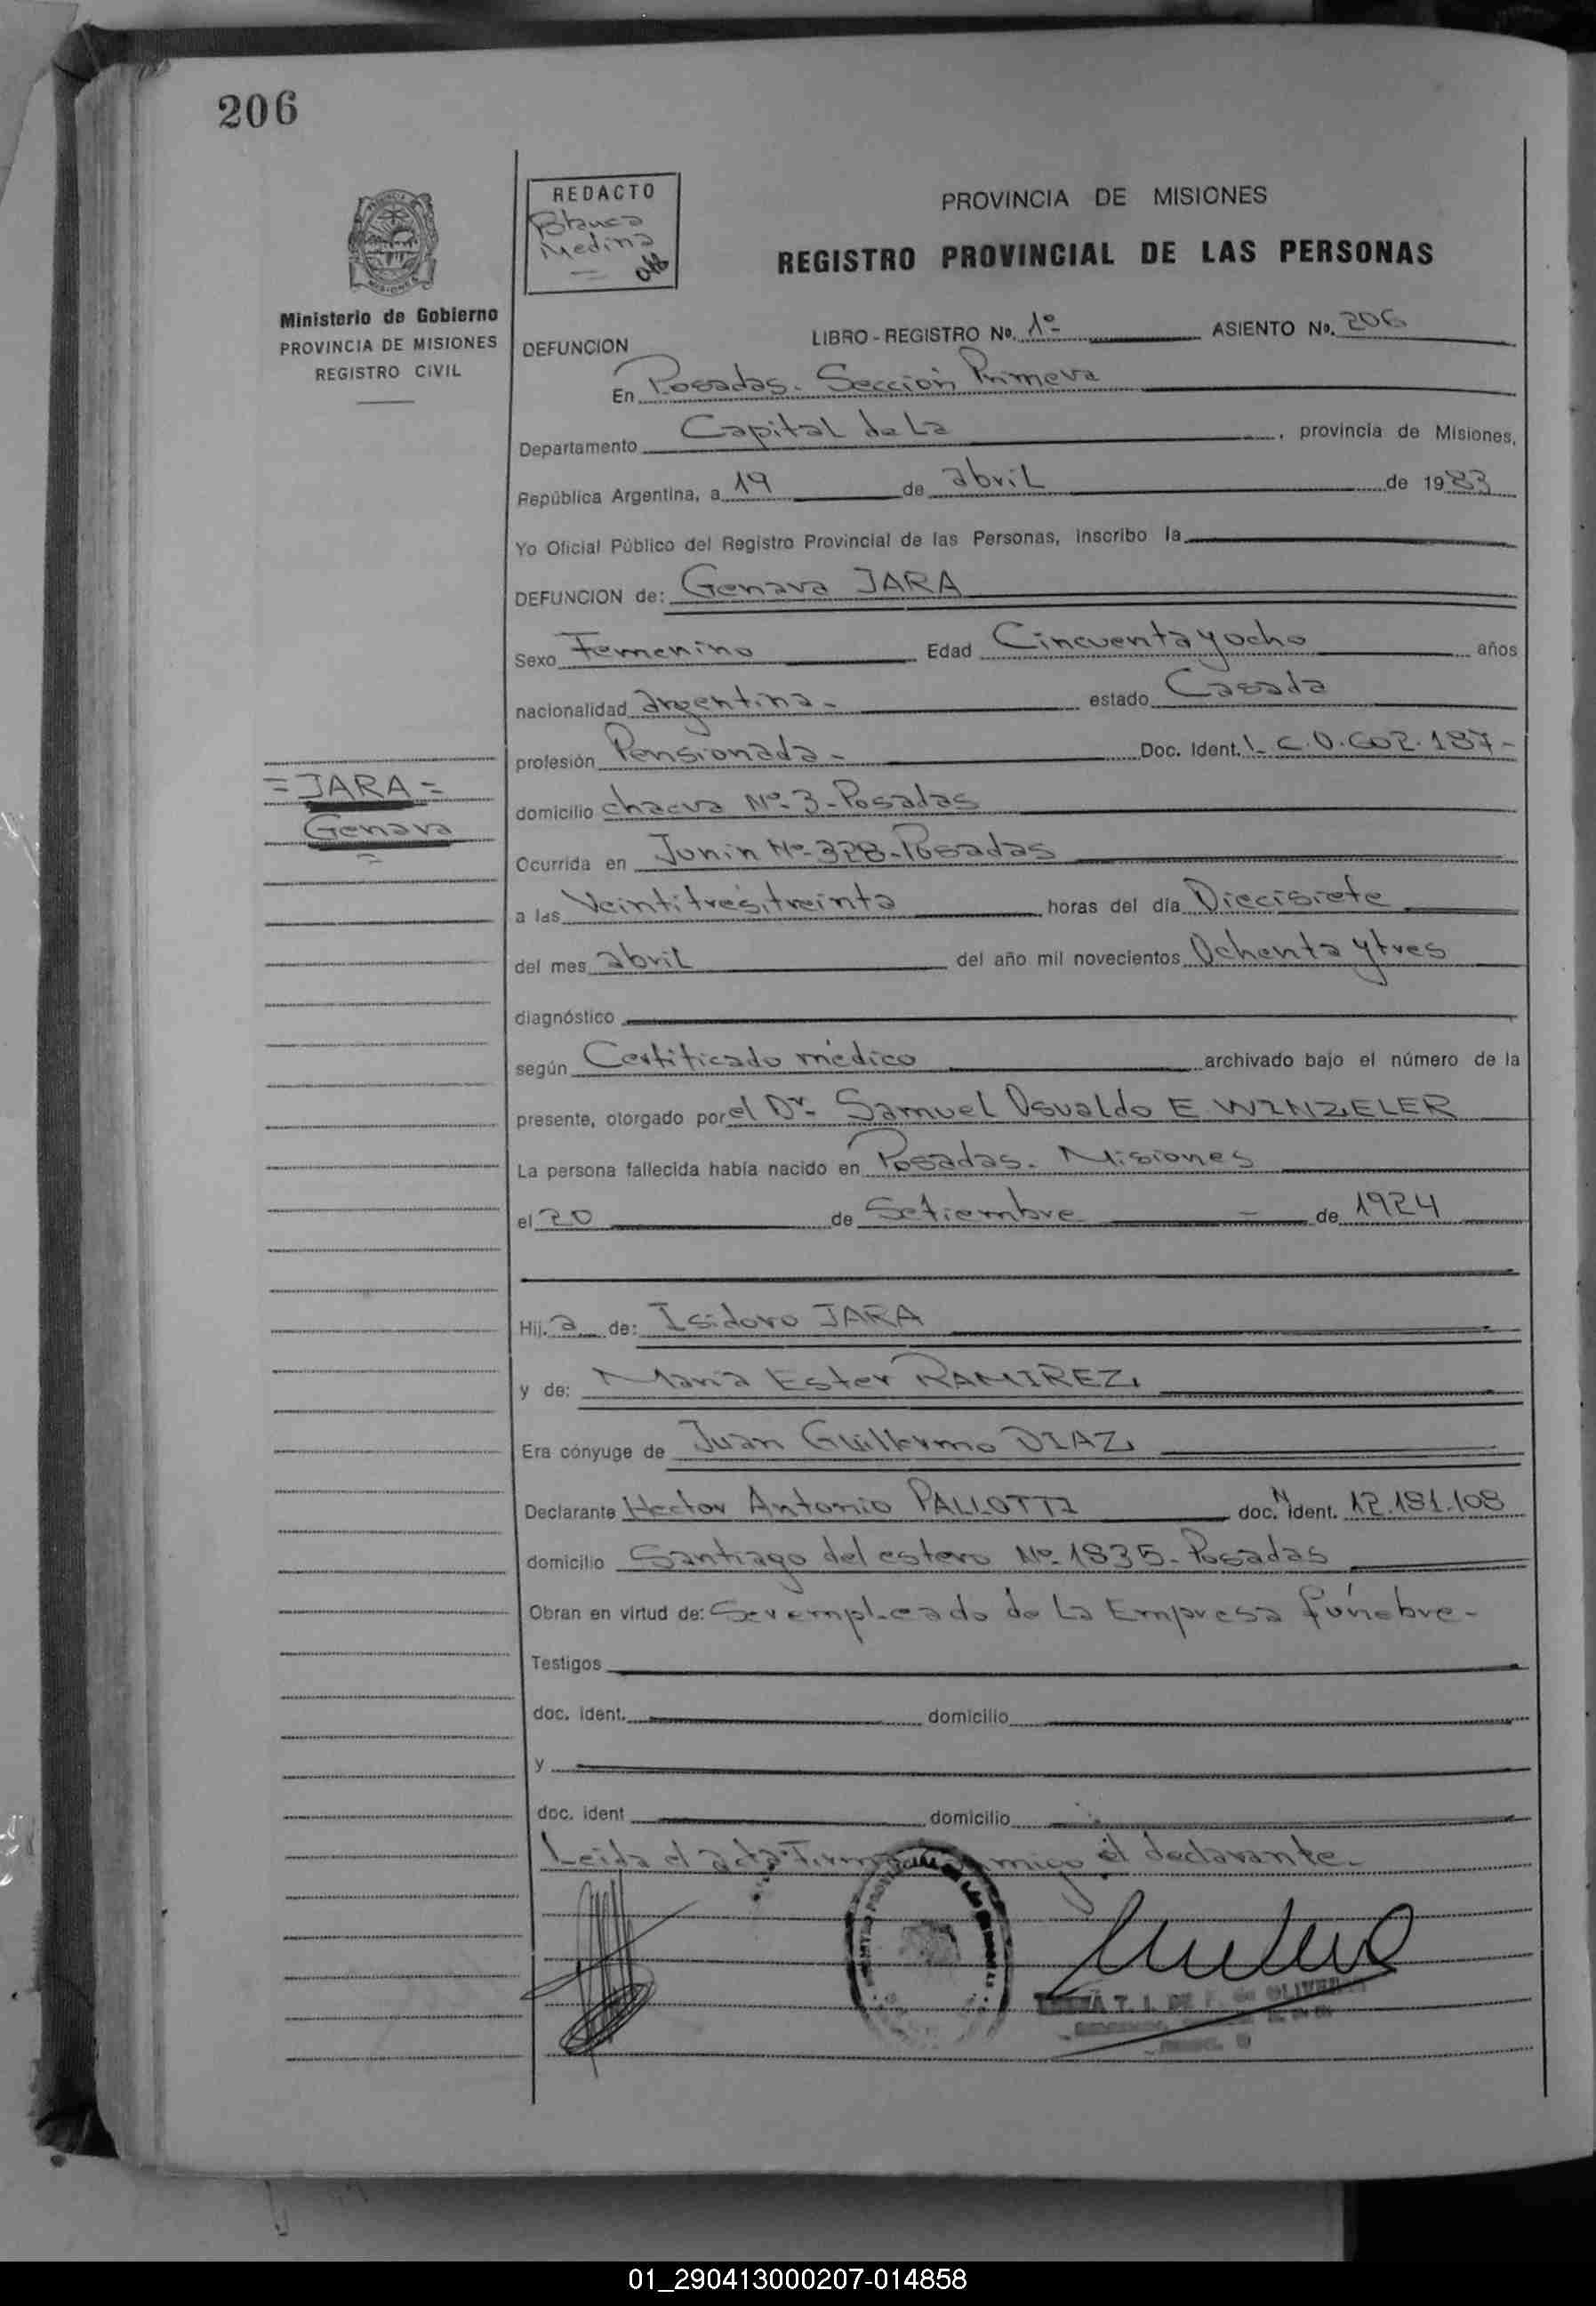 206
REDACTO
Blanca
Medina
PROVINCIA DE MISIONES
REGISTRO PROVINCIAL DE LAS PERSONAS
Ministerio de Gobierno
PROVINCIA DE MISIONES
REGISTRO CIVIL
DEFUNCION LIBRO - REGISTRO No. 1º ASIENTO No. 206
En Posadas. Sección Primera
Departamento Capital de La, provincia de Misiones,
República Argentina, a 19 de abril de 1983
Yo Oficial Público del Registro Provincial de las Personas, inscribo la
DEFUNCION de: Genara JARA
Sexo Femenino Edad Cincuenta y ocho años
nacionalidad argentina- estado Casada
profesión Pensionada- Doc. Ident. L.C.0.602.187-
domicilio chacra Nº-3-Posadas
= JARA =
Genara
Ocurrida en Junin Nº-328-Posadas
a las Veintitres, treinta horas del día Diecisiete
del mes abril del año mil novecientos Ochenta y tres
diagnóstico
según Certificado médico archivado bajo el número de la
presente, otorgado por el Dr- Samuel Osvaldo E WINZIELER
La persona fallecida había nacido en Posadas- Misiones
el 20 de Setiembre de 1924
Hij. a de: Isidoro JARA
y de: Maria Ester RAMIREZ
Era cónyuge de Juan Guillermo DIAZ
Declarante Hector Antonio PALLOTTI doc. N ident. 12.181.108
domicilio Santiago del estero Nº-1835-Posadas
Obran en virtud de: Ser empleado de La Empresa fúnebre-
Testigos
doc. ident. domicilio
y
doc. ident domicilio
Leida el acta el declarante-
01_290413000207-014858